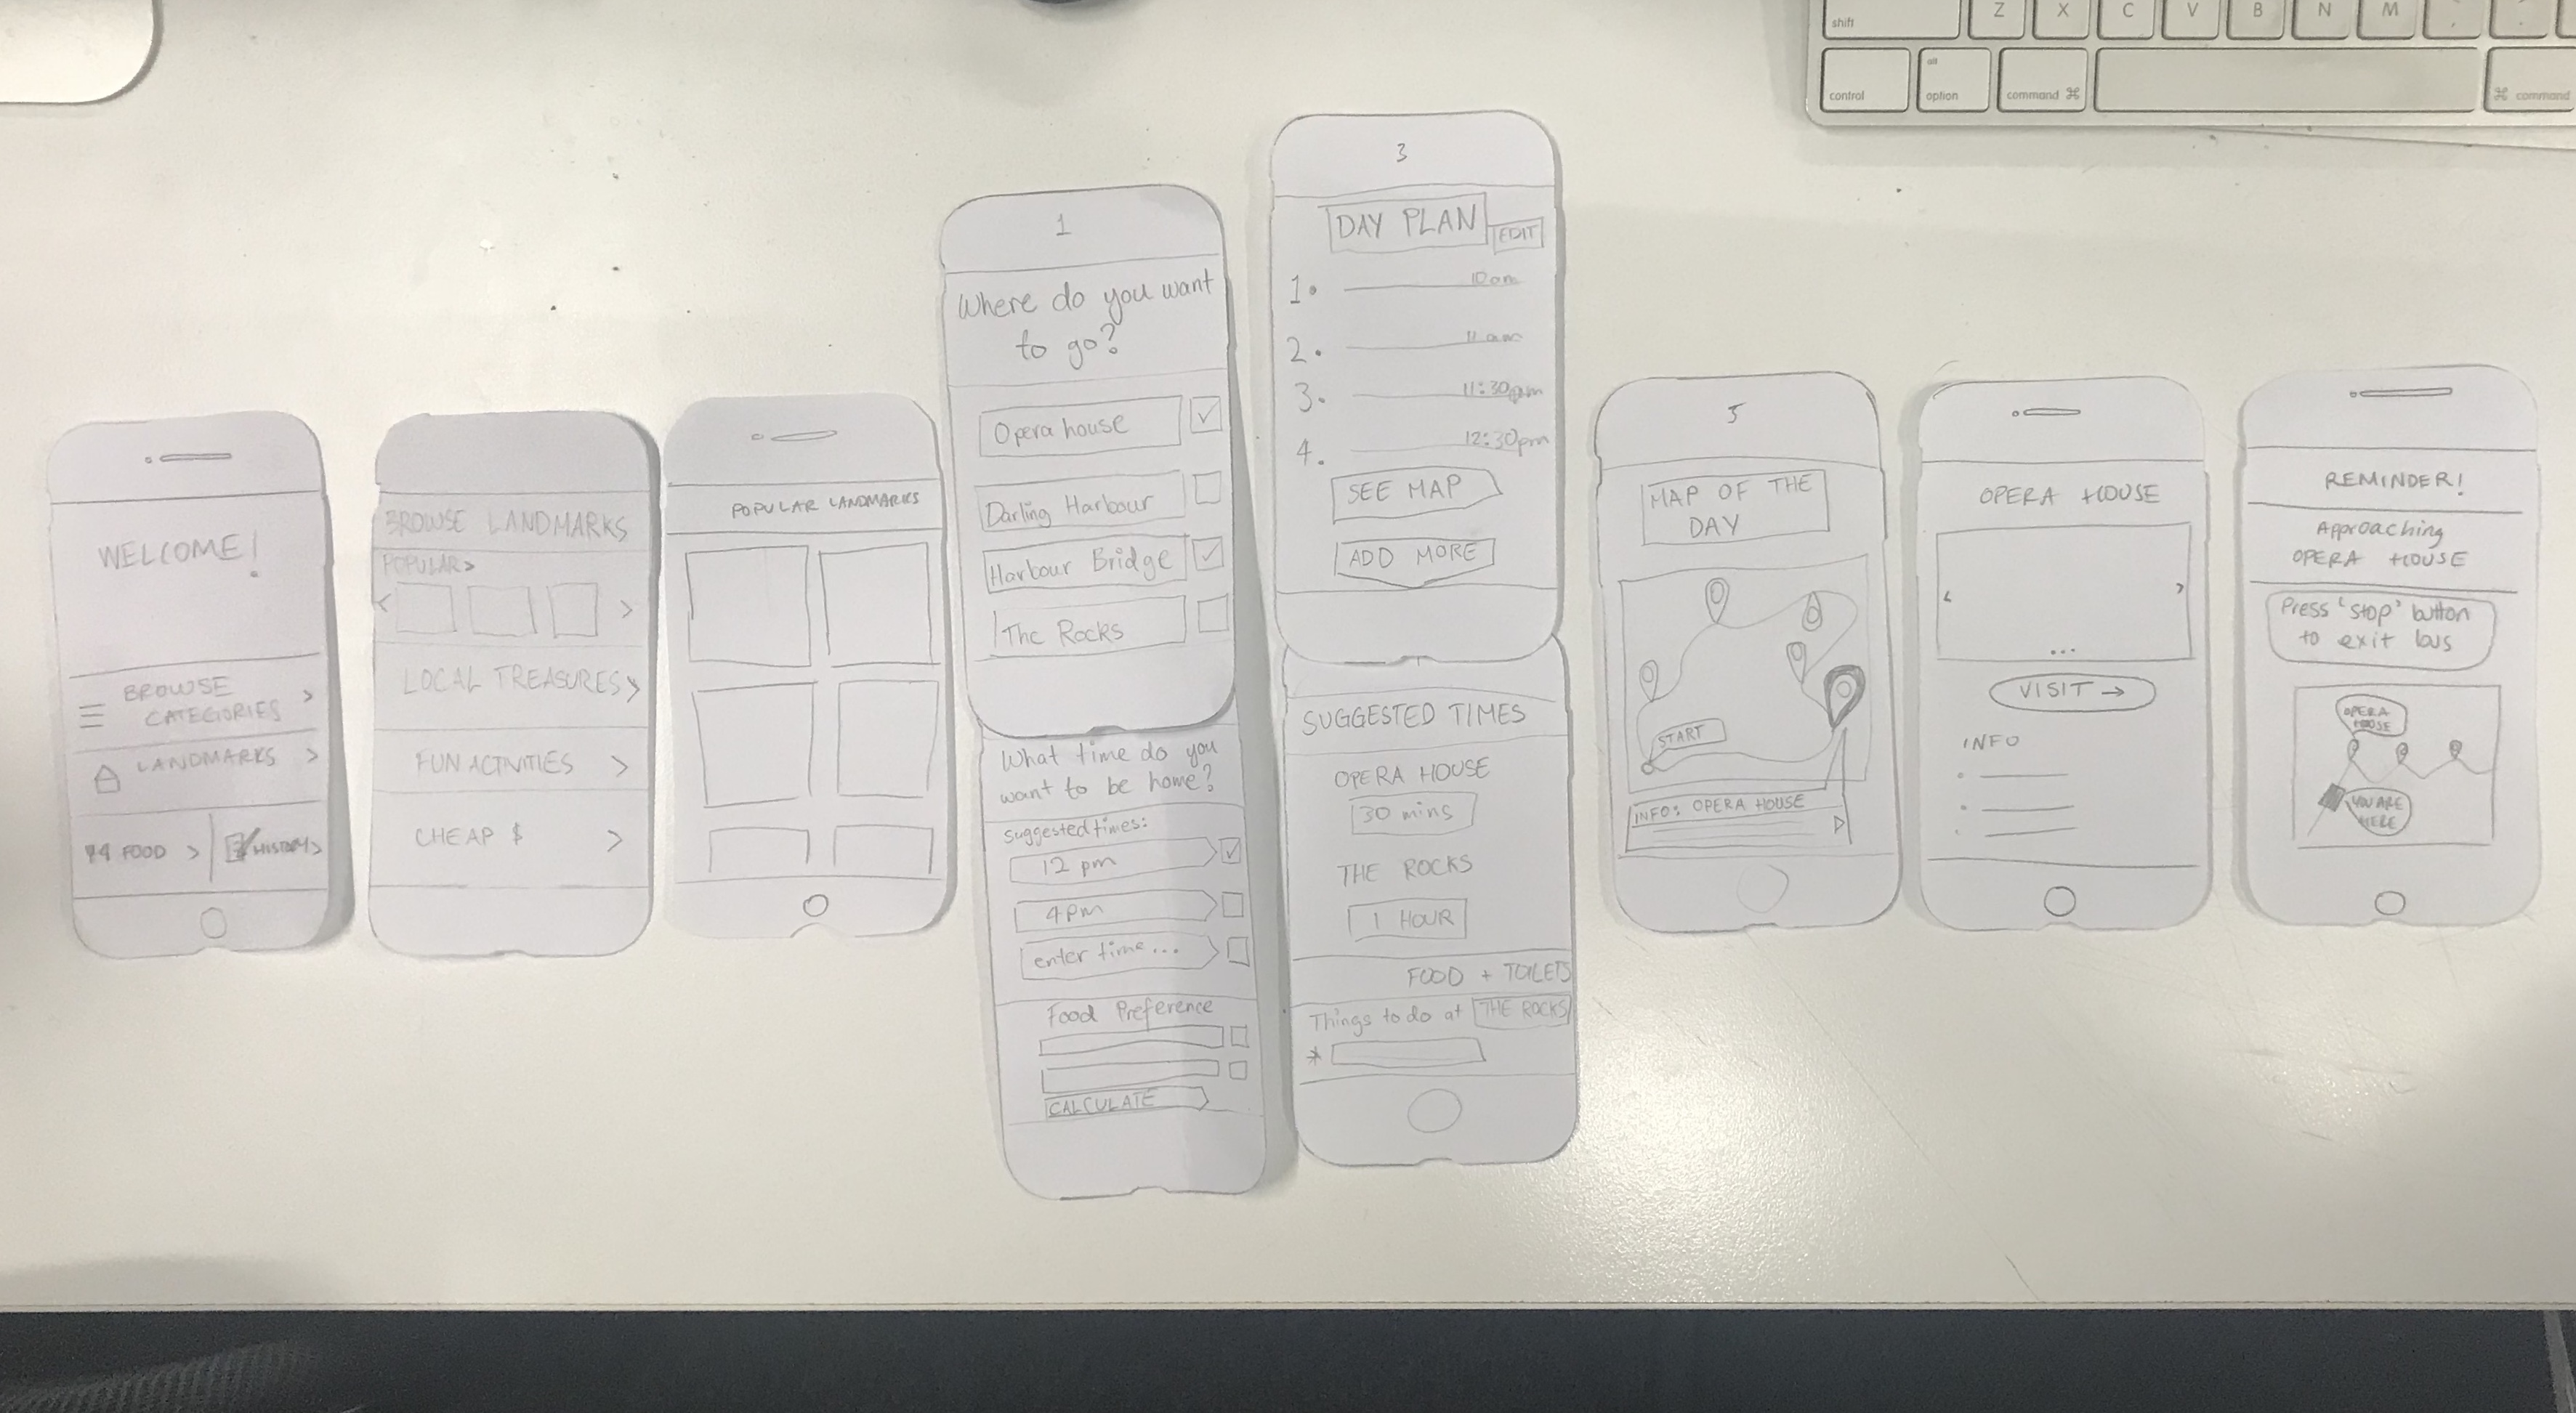 WELCOME!
BROWSE
CATEGORIES >
LANDMARKS >
FOOD >
HISTORY >
BROWSE LANDMARKS
POPULAR >
< >
LOCAL TREASURES >
FUN ACTIVITIES >
CHEAP $ >
POPULAR LANDMARKS
1
Where do you want
to go?
Opera house
Darling Harbour
Harbour Bridge
The Rocks
What time do you
want to be home?
suggested times:
12 pm
4pm
enter time...
Food Preference
CALCULATE
3
DAY PLAN
EDIT
1. 10am
2. 11am
3. 11:30pm
4. 12:30pm
SEE MAP
ADD MORE
SUGGESTED TIMES
OPERA HOUSE
30 mins
THE ROCKS
1 HOUR
FOOD + TOILETS
Things to do at THE ROCKS
*
5
MAP OF THE
DAY
START
INFO: OPERA HOUSE
OPERA HOUSE
< >
...
VISIT →
INFO
REMINDER!
Approaching
OPERA HOUSE
Press 'stop' button
to exit bus
OPERA
HOUSE
YOU ARE
HERE
shift
Z
X
C
V
B
N
M
,
.
control
alt
option
command ⌘
⌘ command